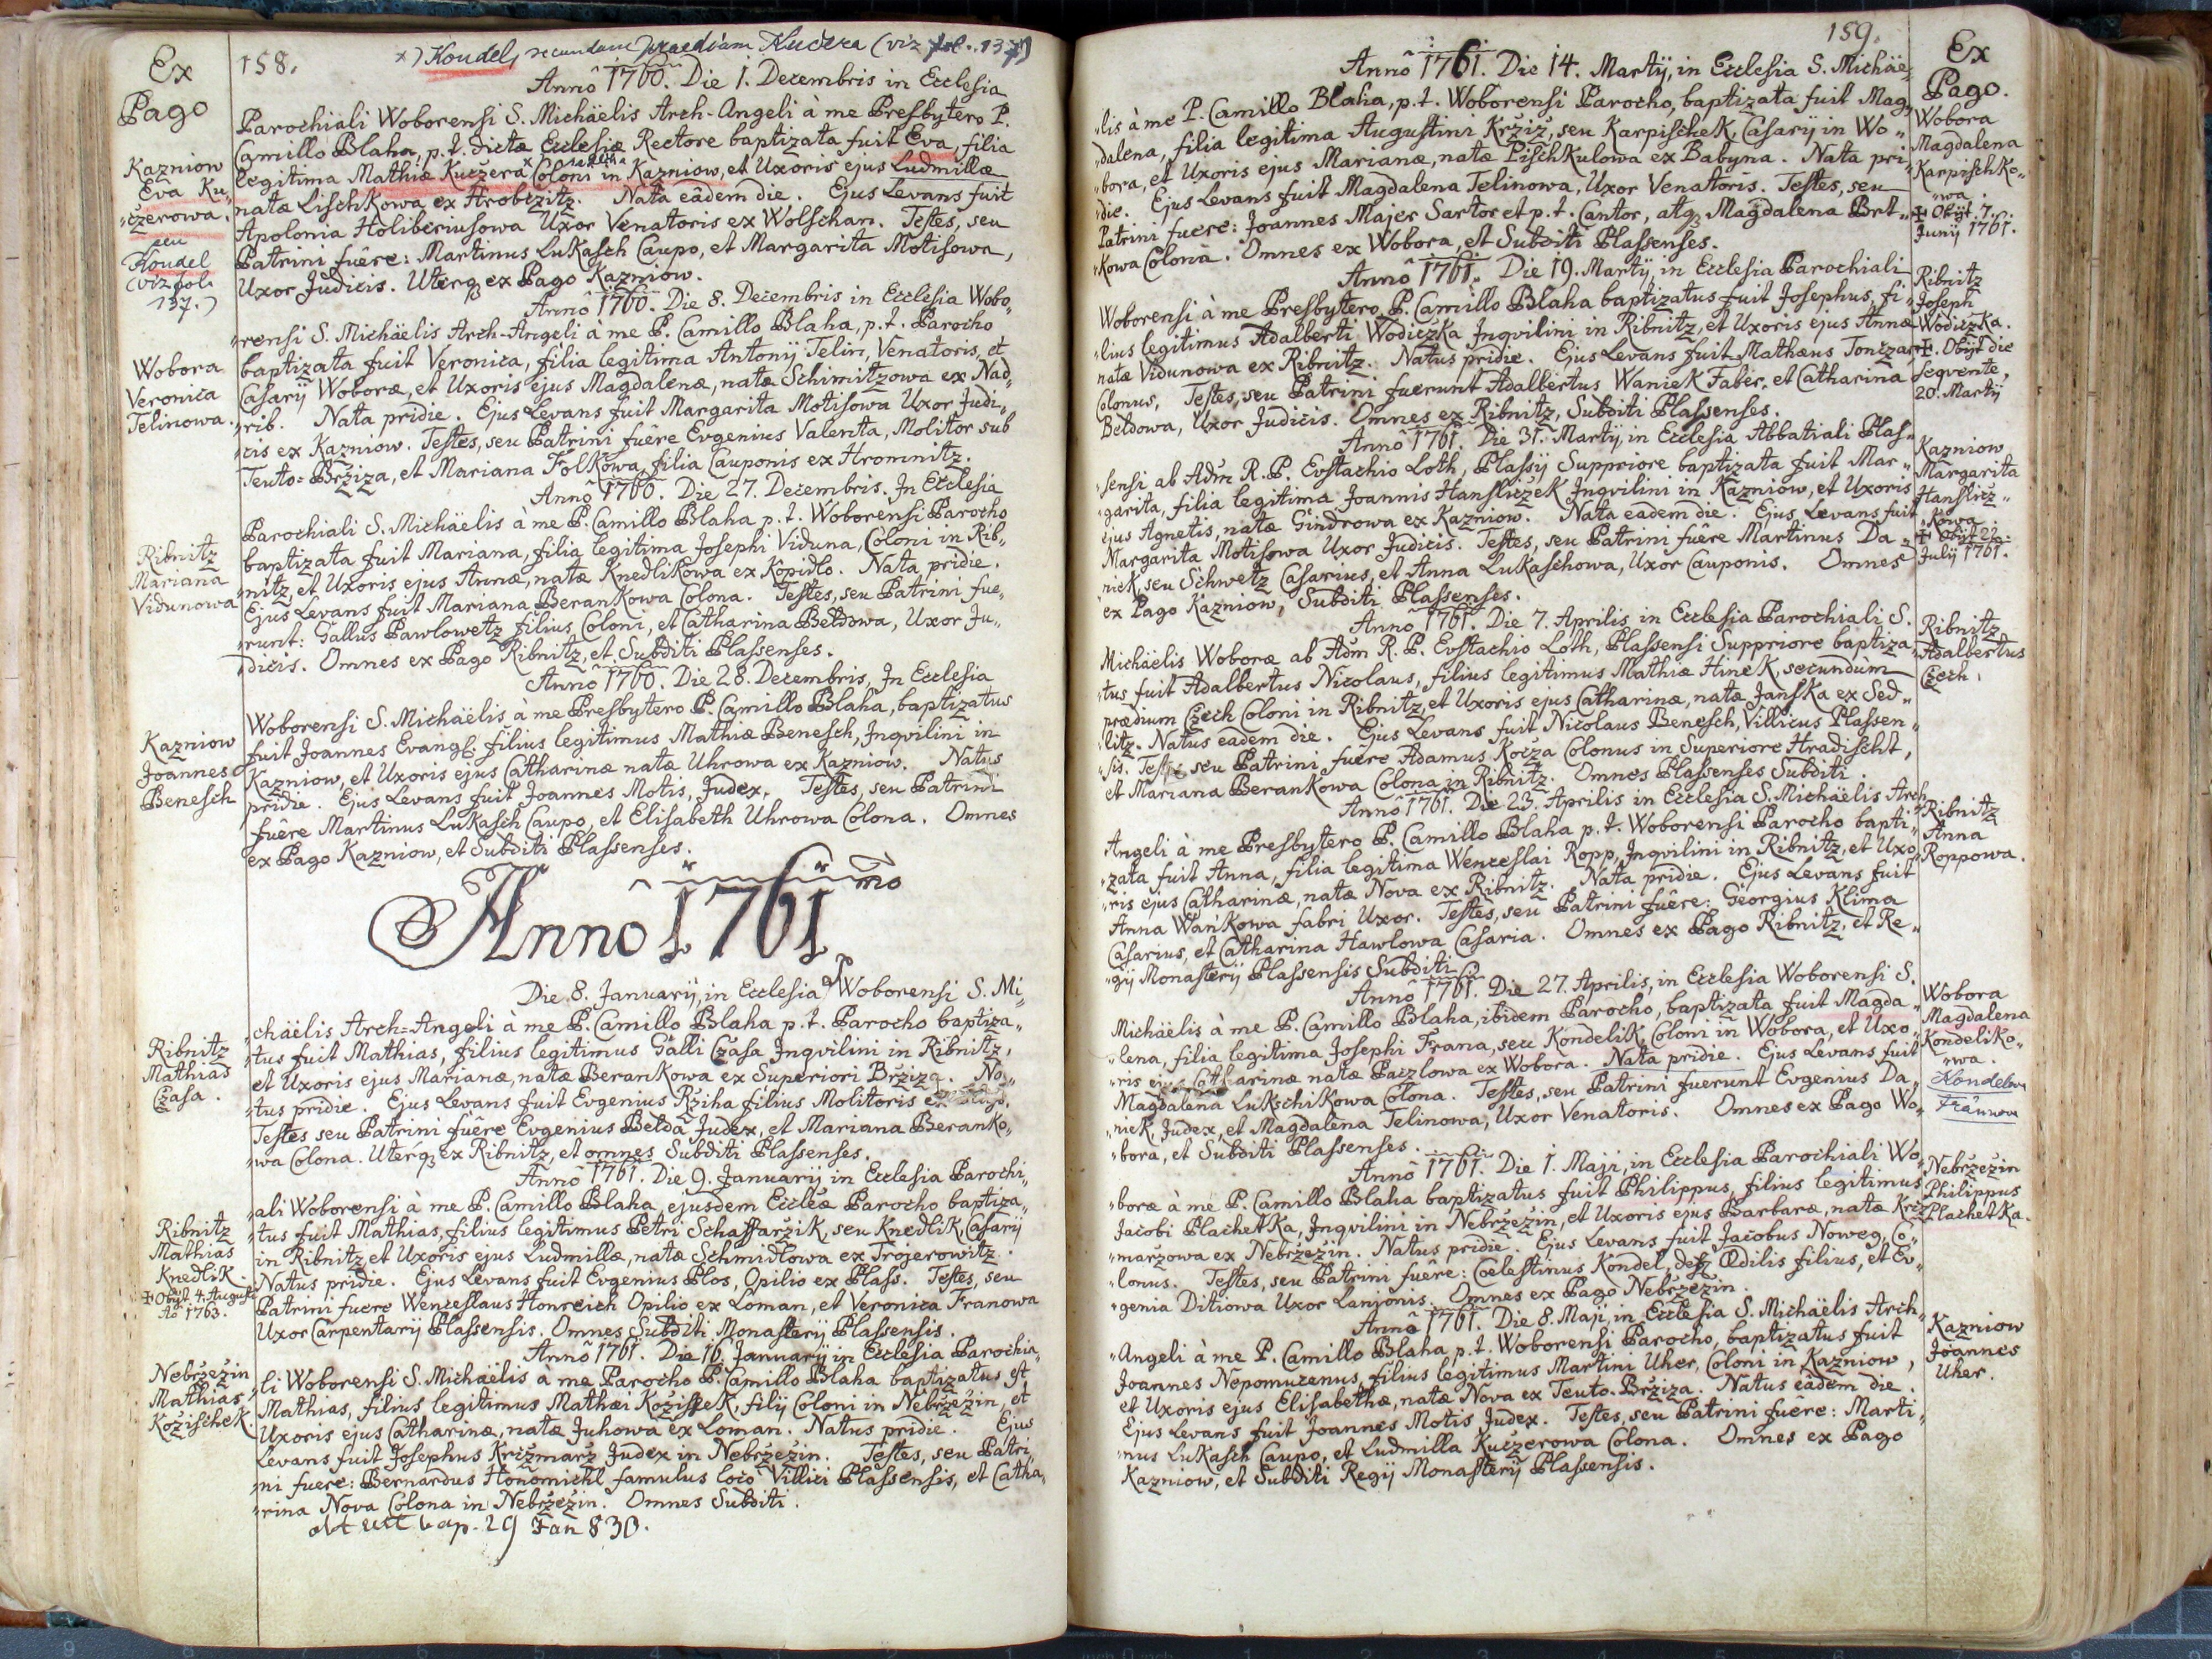 Ex
Pago
158.
x) Koudel, secundum praedium Kuczera (viz fol. 137)
Annô 1760. Die 1. Decembris in Ecclesia
Parochiali Woborensi S. Michäelis Arch-Angeli à me Presbytero P.
Camillo Blaha, p. t. dictæ Ecclesiæ Rectore baptizata fuit Eva, filia
legitima Mathiæ Kuczera x Coloni in Kazniow, et Uxoris ejus Ludmillæ
natæ Lischkowa ex Hrobczitz. Nata eâdem die. Ejus Levans fuit
Apolonia Holiberiusowa Uxor Venatoris ex Wolschan. Testes, seu
Patrini fuêre: Martinus Lukasch Caupo, et Margarita Motisowa,
Uxor Judicis. Uterq3 ex Pago Kazniow.
Kazniow
Eva Ku„
„czerowa.
seu
Koudel
(viz fol.
137.)
Annô 1760. Die 8. Decembris in Ecclesia Wobo„
„rensi S. Michäelis Arch-Angeli à me P. Camillo Blaha, p. t. Parocho
baptizata fuit Veronica, filia legitima Antonij Telin, Venatoris, et
Casarij Woboræ, et Uxoris ejus Magdalenæ, natæ Schimitzowa ex Nad„
„rib. Nata pridie. Ejus Levans fuit Margarita Motisowa Uxor Judi„
„cis ex Kazniow. Testes, seu Patrini fuêre Evgenius Valenta, Molitor sub
Teuto-Brziza, et Mariana Folkowa, filia Cauponis ex Hromnitz.
Wobora
Veronica
Telinowa.
Annô 1760. Die 27. Decembris. In Ecclesia
Parochiali S. Michäelis à me P. Camillo Blaha p. t. Woborensi Parocho
baptizata fuit Mariana, filia legitima Josephi Viduna, Coloni in Rib„
„nitz, et Uxoris ejus Annæ, natæ Knedlikowa ex Kopidlo. Nata pridie.
Ejus Levans fuit Mariana Berankowa Colona. Testes, seu Patrini fue„
„runt: Gallus Pawlowetz filius Coloni, et Catharina Beldowa, Uxor Ju„
„dicis. Omnes ex Pago Ribnitz, et Subditi Plassenses.
Ribnitz
Mariana
Vidunowa
Annô 1760. Die 28. Decembris, In Ecclesia
Woborensi S. Michäelis à me Presbytero P. Camillo Blaha, baptizatus
fuit Joannes Evangl: filius legitimus Mathiæ Benesch, Inqvilini in
Kazniow, et Uxoris ejus Catharinæ natæ Uhrowa ex Kazniow. Natus
pridie. Ejus Levans fuit Joannes Motis, Judex. Testes, seu Patrini
fuêre Martinus Lukasch Caupo, et Elisabeth Uhrowa Colona. Omnes
ex Pago Kazniow, et Subditi Plassenses.
Kazniow
Joannes
Benesch
Annô 1761mo
Die 8. Januarij, in Ecclesia Woborensi S. Mi„
„chäelis Arch-Angeli à me P. Camillo Blaha p. t. Parocho baptiza„
„tus fuit Mathias, filius legitimus Galli Czasa Inqvilini in Ribnitz,
et Uxoris ejus Marianæ, natæ Berankowa ex Superiori Brziza. Na„
„tus pridie. Ejus Levans fuit Evgenius Rziha filius Molitoris ex
Testes seu Patrini fuêre Evgenius Belda Judex, et Mariana Beranko„
„wa Colona. Uterq3 ex Ribnitz, et omnes Subditi Plassenses.
Ribnitz
Mathias
Czasa.
Annô 1761. Die 9. Januarij in Ecclesia Parochi„
„ali Woborensi à me P. Camillo Blaha, ejusdem Eccleæ Parocho baptiza„
„tus fuit Mathias, filius legitimus Petri Schaffarzik, seu Knedlik, Casarij
in Ribnitz, et Uxoris ejus Ludmillæ, natæ Schmidlowa ex Trojerowitz.
Natus pridie. Ejus Levans fuit Evgenius Plos, Opilio ex Plass. Testes, seu
Patrini fuere Wenceslaus Honreich Opilio ex Loman, et Veronica Franowa
Uxor Carpentarij Plassensis. Omnes Subditi Monasterij Plassensis.
Ribnitz
Mathias
Knedlik.
✠ Obijt. 4. Augusti
Aô 1763.
Annô 1761. Die 16. Januarij in Ecclesia Parochia„
„li Woborensi S. Michäelis a me Parocho P. Camillo Blaha baptizatus est
Mathias, filius legitimus Mathæi Kozissek, filij Coloni in Nebrzezin, et
Uxoris ejus Catharinæ, natæ Juhowa ex Loman. Natus pridie. Ejus
Levans fuit Josephus Krizmarz Judex in Nebrzezin. Testes, seu Patri„
„ni fuere: Bernardus Honomichl famulus locô Villici Plassensis, et Catha„
„rina Nova Colona in Nebrzezin. Omnes Subditi.
29 Jan 830.
Nebrzezin
Mathias
Kozischek
159.
Ex
Pago.
Annô 1761. Die 14. Martij, in Ecclesia S. Michäe„
„lis à me P. Camillo Blaha, p. t. Woborensi Parocho, baptizata fuit Mag„
„dalena, filia legitima Augustini Krziz, seu Karpischek, Casarij in Wo„
„bora, et Uxoris ejus Marianæ, natæ Pischkulowa ex Babyna. Nata pri„
„die. Ejus Levans fuit Magdalena Telinowa, Uxor Venatoris. Testes, seu
Patrini fuere: Joannes Majer Sartor et p. t. Cantor, atq3 Magdalena Brt„
„kowa Colona. Omnes ex Wobora, et Subditi Plassenses.
Wobora
Magdalena
Karpischko„
„wa
✠ Obijt. 7.
Junij 1761.
Annô 1761. Die 19. Martij, in Ecclesia Parochiali
Woborensi à me Presbytero P. Camillo Blaha baptizatus fuit Josephus, fi„
„lius legitimus Adalberti Wodiczka Inqvilini in Ribnitz, et Uxoris ejus Annæ
natæ Vidunowa ex Ribnitz. Natus pridie. Ejus Levans fuit Mathæus Tonczar
Colonus, Testes, seu Patrini fuerunt Adalbertus Waniek Faber, et Catharina
Beldowa, Uxor Judicis. Omnes ex Ribnitz, Subditi Plassenses.
Ribnitz
Joseph
Wodiczka.
✠. Obijt die
seqvente,
20. Martij
Annô 1761. Die 31. Martij, in Ecclesia Abbatiali Plas„
„sensi ab Adm R. P. Evstachio Loth, Plassij Suppriore baptizata fuit Mar„
„garita, filia legitima Joannis Hansliczek Inqvilini in Kazniow, et Uxoris
ejus Agnetis, natæ Gindrowa ex Kazniow. Nata eadem die. Ejus Levans fuit
Margarita Motisowa Uxor Judicis. Testes, seu Patrini fuêre Martinus Da„
„niek, seu Schwetz Casarius, et Anna Lukaschowa, Uxor Cauponis. Omnes
ex Pago Kazniow, Subditi Plassenses.
Kazniow
Margarita
Hanslicz„
„kowa
✠ Obijt
Julij 1761.
Annô 1761. Die 7. Aprilis, in Ecclesia Parochiali S.
Michäelis Woboræ ab Adm R. P. Evstachio Loth, Plassensi Suppriore baptiza„
„tus fuit Adalbertus Nicolaus, filius legitimus Mathiæ Hinek, secundùm
prædium Czech Coloni in Ribnitz, et Uxoris ejus Catharinæ, natæ Janska ex Sed„
„litz. Natus eadem die. Ejus Levans fuit Nicolaus Benesch, Villicus Plassen„
„sis. Testes seu Patrini fuêre Adamus Kocza Colonus in Superiore Hradischt,
et Mariana Berankowa Colona in Ribnitz. Omnes Plassenses Subditi.
Ribnitz
Adalbertus
Czech.
Annô 1761. Die 23. Aprilis in Ecclesia S. Michäelis Arch„
„Angeli à me Presbytero P. Camillo Blaha p. t. Woborensi Parocho bapti„
„zata fuit Anna, filia legitima Wenceslai Ropp, Inqvilini in Ribnitz, et Uxo„
„ris ejus Catharinæ, natæ Nova ex Ribnitz. Nata pridie. Ejus Levans fuit
Anna Wańkowa fabri Uxor. Testes, seu Patrini fuêre: Georgius Klima
Casarius, et Catharina Hawlowa Casaria. Omnes ex Pago Ribnitz, et Re„
„gij Monasterij Plassensis Subditi.
Ribnitz
Anna
Roppowa.
Annô 1761. Die 27. Aprilis, in Ecclesia Woborensi S.
Michäelis à me P. Camillo Blaha, ibidem Parocho, baptizata fuit Magda„
„lena, filia legitima Josephi Frana, seu Kondelik, Coloni in Wobora, et Uxo„
„ris ejus Catharinæ natæ Paczlowa ex Wobora. Nata pridie. Ejus Levans fuit
Magdalena Lukschikowa Colona. Testes, seu Patrini fuerunt Evgenius Da„
„niek, Judex, et Magdalena Telinowa, Uxor Venatoris. Omnes ex Pago Wo„
„bora, et Subditi Plassenses.
Wobora
Magdalena
Kondeliko„
„wa.
Annô 1761. Die 1. Maji, in Ecclesia Parochiali Wo„
„boræ à me P. Camillo Blaha baptizatus fuit Philippus, filius legitimus
Jacobi Plachetka, Inqvilini in Nebrzezin, et Uxoris ejus Barbaræ, natæ Kriz„
„marzowa ex Nebrzezin. Natus pridie. Ejus Levans fuit Jacobus Noweg, Co„
„lonus. Testes, seu Patrini fuêre: Cœlestinus Kondel, Ædilis filius, et Ev„
„genia Ditiowa Uxor Lanionis. Omnes ex Pago Nebrzezin.
Nebrzezin
Philippus
Plachetka.
Annô 1761. Die 8. Maji, in Ecclesia S. Michäelis Arch„
„Angeli à me P. Camillo Blaha, p. t. Woborensi Parocho, baptizatus fuit
Joannes Nepomucenus, filius legitimus Martini Uher, Coloni in Kazniow,
et Uxoris ejus Elisabethæ, natæ Nova ex Teuto-Brziza. Natus eâdem die.
Ejus Levans fuit Joannes Motis Judex. Testes, seu Patrini fuêre: Marti„
„nus Lukasch Caupo, et Ludmilla Kuczerowa Colona. Omnes ex Pago
Kazniow, et Subditi Regij Monasterij Plassensis.
Kazniow
Joannes
Uher.